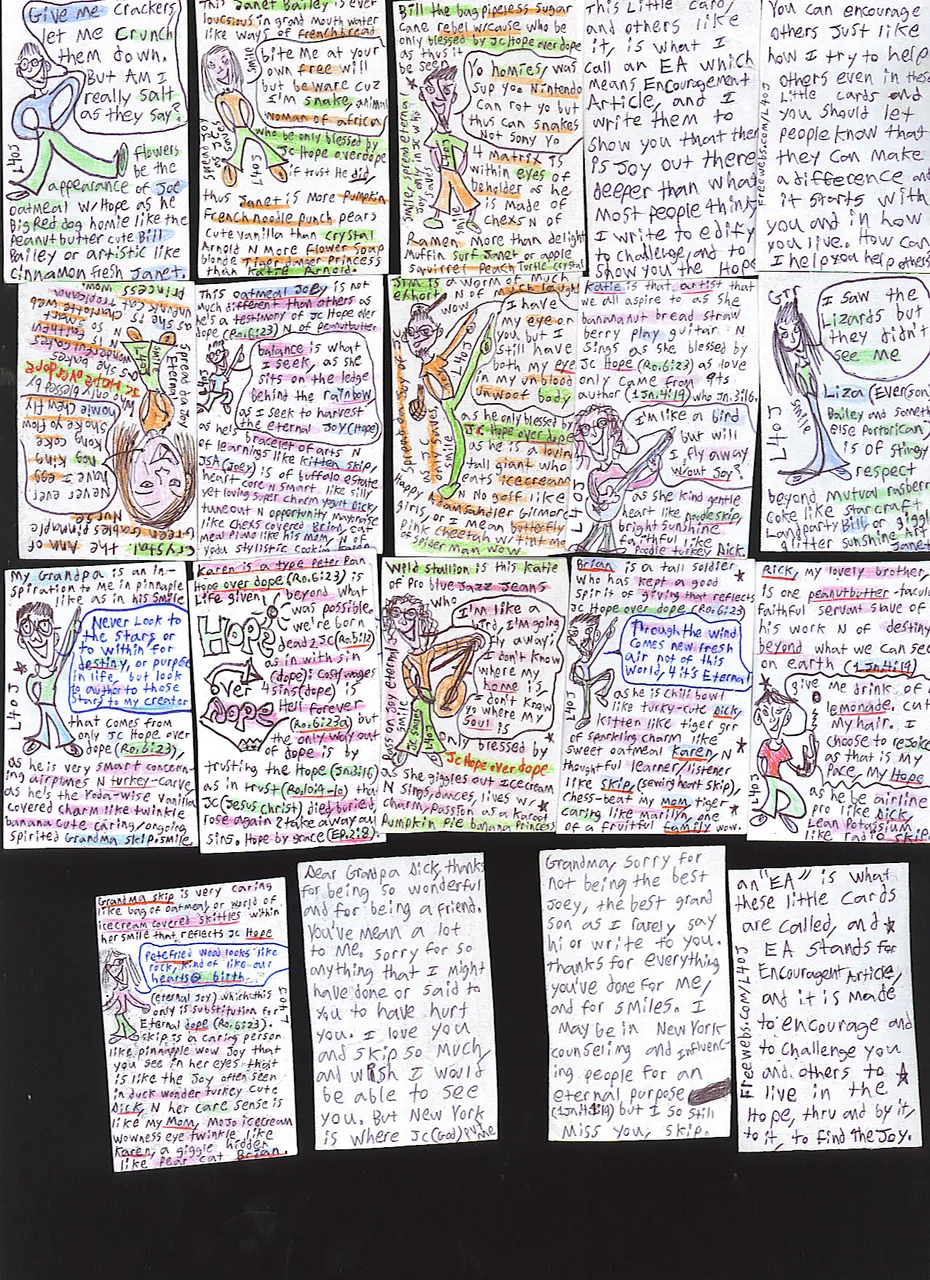 Give me Crackers
let me Crunch
them down.
But AM I
really Salt
as they say?
L4OJ
flowers
be the
appearance of Joe
oatmeal w/Hope as he
Big Red dog homie like the
Peanut butter cute Bill
Bailey or artistic like
cinnamon fresh Janet.
This Janet Bailey is ever
in grand mouth water
like ways of frenchbread
Smile
bite me at your
own free will
but be ware cuz
I'm snake, animal
woman of africa
who be only blessed
by JC Hope overdope
if trust He did
L4OJ
thus Janet is more Pumpkin
French noodle punch pears
Cute vanilla than Crystal
Arnold N More flower soap
blonde Tiger Tanger Princess
than Katie Arnold.
Bill the bagpipeless sugar
Cane rebel w/cause who be
only blessed by JC Hope over dope
as thus it
be seen
Yo homies, was
sup you Nintendo
Can rot yo but
thus can snakes
Not sony Yo
4 Matrix is
within eyes of
beholder as he
is made of
chexs N of
Ramen more than delight
Muffin surf Janet or apple
squirrel Peach Turtle crystal
This Little Card,
and others like
it, is what I
call an EA which
means Encouragement
Article, and I
write them to
show you that there
is Joy out there
deeper than what
most people think.
I write to edify
to challenge, and to
show you the Hope
freewebs.com/L4OJ
You can encourage
others Just like
how I try to help
others even in these
Little cards and
you should let
people know that
they can make
a difference and
it starts with
you and in how
you live. How can
I help you help others
Crystal the Ann of
Green Gables example
Nurse
Never ever
have I egg
Nog King
Kong cake
shake yo flow
homie then fly
who only blessed by
JC Hope overdope
Spread da Joy
Eternal
Smile
L4OJ
This oatmeal Joey is not
much different than others as
he's a testimony of JC Hope over
dope (Ro.6:23) N of peanutbutter
balance is what
I seek, as she
sits on the ledge
behind the rainbow
as I seek to harvest
the eternal Joy (Hope)
L4OJ
as he is bracelet of arts N
of learnings like kitten skip,
JSA (Joey) is of buffalo estate
heart core N smart like silly
yet loving super charm yogurt Dick,
tuneout N opportunity Mayonaise
like chexs covered Brian, oat
meal Piano like his mom, N of
yoda stylistic Cookin Karen
Jim is a worm of much
effort N of much laugh
wow
I have
my eye or
you but I
still have
both my eye
in my unblood
unwoof body
as he only blessed by
JC Hope over dope
as he is a lovin
tall giant who
eats icecream
N No golf like
Happy Adam Sandler Gilmore
girls, or I mean butterfly
Pink cheetah w/tint me
of Spider man wow
L4OJ
Smile
Katie is that artist that
we all aspire to as she
banananut bread straw
berry play guitar N
sings as she blessed by
JC Hope (Ro.6:23) as love
only came from 9ts
author (1Jn.4:19) who Jn.3:16.
I'm like a bird
but will
I fly away
w/out Joy?
L4OJ
as she kind gentle
heart like noodle skip,
bright sunshine
faithful like
Poodle turkey Dick.
Grr
I saw the
Lizards but
they didn't
see me
L4OJ
smile
Liza (Everson)
Bailey and something
Else portorican,
is of stingy
respect
beyond mutual rasberry
coke like starcraft
Landparty Bill or giggle
glitter sunshine art
Janet
My Grandpa is an in-
spiration to me in pinnaple
like as in his smile
Never Look to
the Stars or
to within for
destiny, or purpose
in life, but look
to author to those
stars to my creator
L4OJ
that comes from
only JC Hope over
dope (Ro.6:23),
as he is very smart concern-
ing airplanes N turkey-carve
as he's the Yoda-wise Vanilla
covered charm like twinkle
banana cute caring/ongoing
spirited Grandma skip.smile.
Karen is a type Peter Pan
Hope over dope (Ro.6:23) is
Life given beyond what
was possible.
we're born
dead 2 JC (Ro.5:12)
as in with sin
(dope): cost/wages
4 sins (dope) is
Hell forever
(Ro.6:23a) but
the only way out
of dope is by
Hope
over
Dope
trusting the Hope (Jn.3:16)
as in trust (Ro.10:9-10) that
JC (Jesus Christ) died, buried
rose again 2 take away our
Sins. Hope by grace (EP.2:8).
Wild stallion is this Katie
of pro blue Jazz Jeans
who
I'm like a
bird, I'm going
fly away;
I don't know
where my
home is
I don't
Know where my
Soul is
Pass on Joy eternal
Smile
L4OJ
only blessed by
JC Hope over dope
as she giggles out Icecream
N Sings, dances, lives w/
charm, Passion as a Karoot
Pumpkin Pie banana Princess
Brian is a tall soldier
who has kept a good
spirit of giving that reflects
JC Hope over dope (Ro.6:23)
Through the wind
comes new fresh
air not of this
world, 4 it's Eternal
L4OJ
as he is chili bowl
like turkey-cute Dick,
kitten like tiger grr
of sparkling charm like
sweet oatmeal Karen, N
thoughtful learner, listener
like skip, (sewing heart skip),
chess-beat my Mom tiger
caring like Marilyn, one
of a fruitful family wow.
Rick, my lovely brother,
is one peanutbutter-tacular
faithful servant slave of
his work N of destiny
beyond what we can see
on earth (1Jn.4:19)
give me drink of
lemonade, cut
my hair. I
choose to rejoice
as that is my
Pace, my Hope
L4OJ
as he be airline
pro like Dick,
Lean Potassium
like radio skip.
Grandma skip is very caring
like bag of oatmeal or world of
icecream covered skittles within
her smile that reflects JC Hope
Petefried wood looks like
rock, kind of like our
hearts @ birth
L4OJ
(eternal Joy) which this
only is substitution for
Eternal dope (Ro.6:23).
skip is a caring person
like pinnapple wow Joy that
you see in her eyes that
is like the Joy often seen
in duck wonder turkey cute
Dick, N her care sense is
like my Mom, Mojo icecream
wowness eye twinkle like
Karen, a giggle hidden
like Pear cat Brian.
Dear Grandpa Dick, thanks
for being so wonderful
and for being a friend.
You've mean a lot
to me. sorry for so
anything that I might
have done or said to
you to have hurt
you. I love you
and skip so much,
and wish I would
be able to see
you. But New York
is where JC (God) put me
Grandma, sorry for
not being the best
Joey, the best grand
son as I rarely say
hi or write to you.
thanks for everything
you've done for me,
and for smiles. I
may be in New York
counseling and influenc-
ing people for an
eternal purpose
(1Jn.4:19) but I so still
Miss you, skip.
an "EA" is what
these little Cards
are called, and
EA stands for
Encouragent Article,
and it is made
to encourage and
to challenge you
and others to
live in the
Hope, thru and by it,
to it, to find the Joy.
Freewebs.com/L4OJ